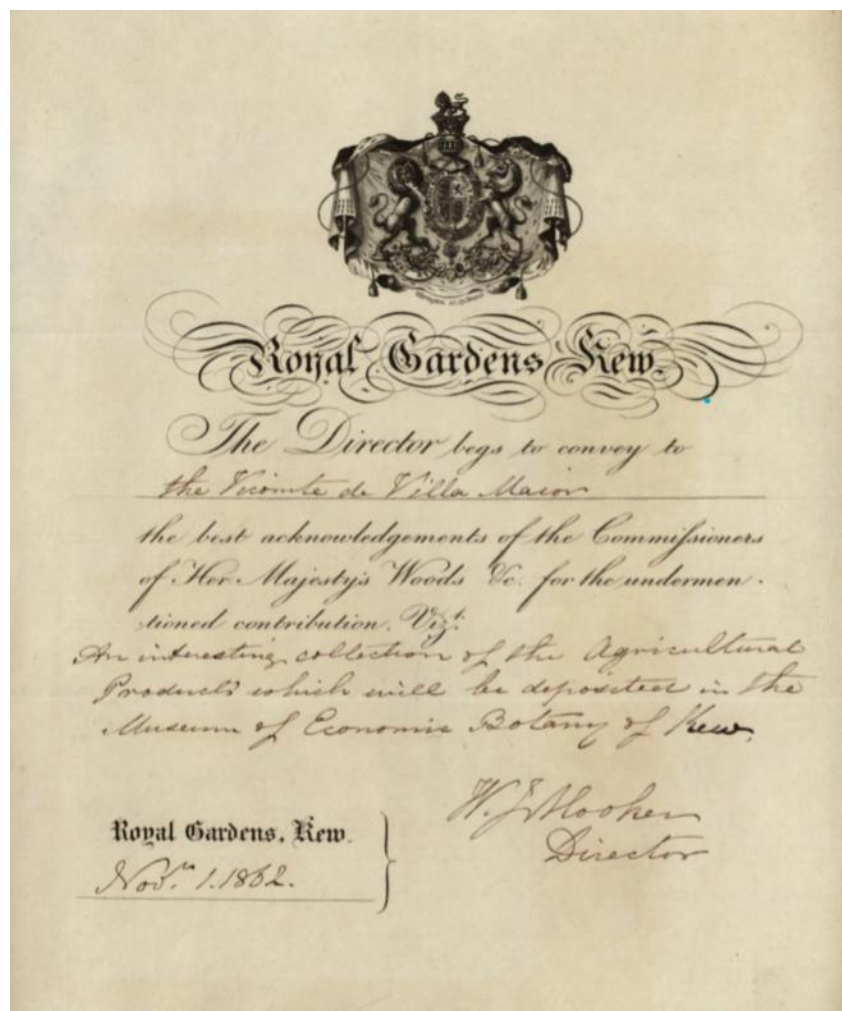 Royal Gardens Kew.
The Director begs to convey to
the Vicomte de Villa Maior
the best acknowledgements of the Commissioners
of Her Majesty's Woods &c. for the undermen-
tioned contribution. Vizt.
An interesting collection of the Agricultural
Products which will be deposited in the
Museum of Economic Botany of Kew.
W. J. Hooker
Director
Royal Gardens, Kew.
Novr. 1. 1862.